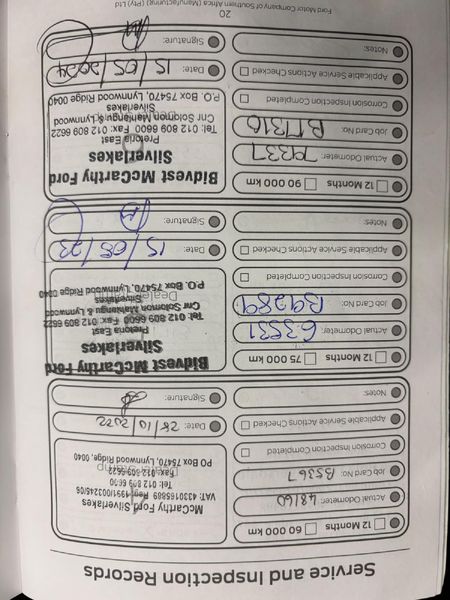 Service and Inspection Records
12 Months 60 000 km
Actual Odometer: 48160
Job Card No: B5367
Corrosion Inspection Completed
Applicable Service Actions Checked
Notes:
McCarthy Ford Silverlakes
VAT: 4330165889 Reg: 1991/003245/06
Tel: 012 809 6600
Fax: 012 809 6622
PO Box 75470, Lynnwood Ridge, 0040
Date: 28/10/2022
Signature:
12 Months 75 000 km
Actual Odometer: 63531
Job Card No: B9289
Corrosion Inspection Completed
Applicable Service Actions Checked
Notes:
Bidvest McCarthy Ford
Silverlakes
Pretoria East
Tel: 012 809 6600 Fax: 012 809 6622
Cnr Solomon Mahlangu & Lynnwood
Silverlakes
P.O. Box 75470, Lynnwood Ridge 0040
Date: 15/08/23
Signature:
12 Months 90 000 km
Actual Odometer: 79337
Job Card No: B17316
Corrosion Inspection Completed
Applicable Service Actions Checked
Notes:
Bidvest McCarthy Ford
Silverlakes
Pretoria East
Tel: 012 809 6600 Fax: 012 809 6622
Cnr Solomon Mahlangu & Lynnwood
Silverlakes
P.O. Box 75470, Lynnwood Ridge 0040
Date: 15/05/2024
Signature:
20
Ford Motor Company of Southern Africa (Manufacturing) (Pty) Ltd